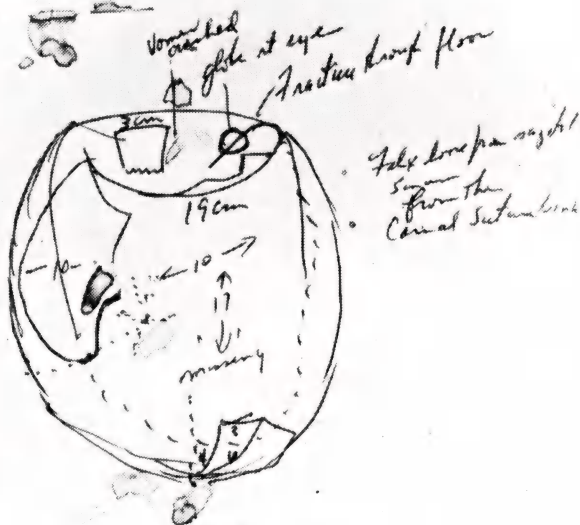 Vomer
crushed
globe rt eye
Fracture through floor
3cm
19cm
Falx loose from sagittal
sinus
from the
Coronal suture back
10
10
17
missing